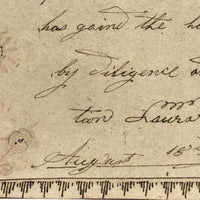 has gaind the h
by diligence a
toon Laura
August 18